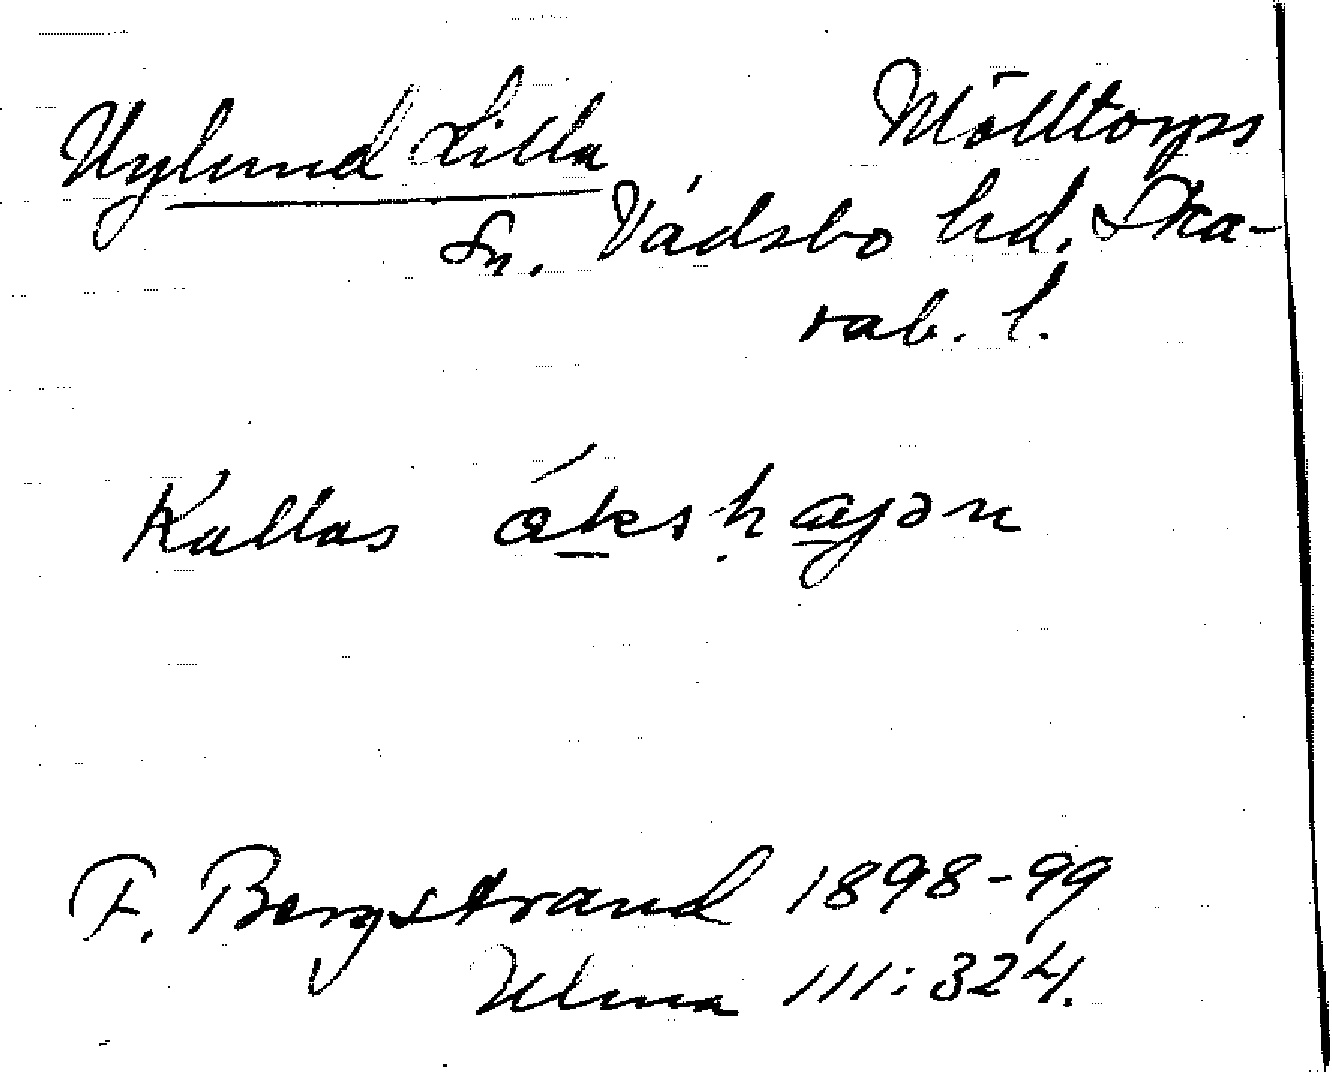 Nylund Lilla Mölltorps
Sn. Vadsbo hd. Ska-
rab. l.
Kallas
F. Bergstrand 1898-99
Ulma 111:324.